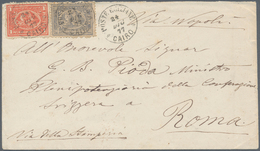 Via Napoli
POSTE EGIZIANE
CAIRO
All' Onorevole Signor
E. B. Pioda Ministro
Plenipotenziario della Confederazione
Svizzera a
Roma
Via Villa